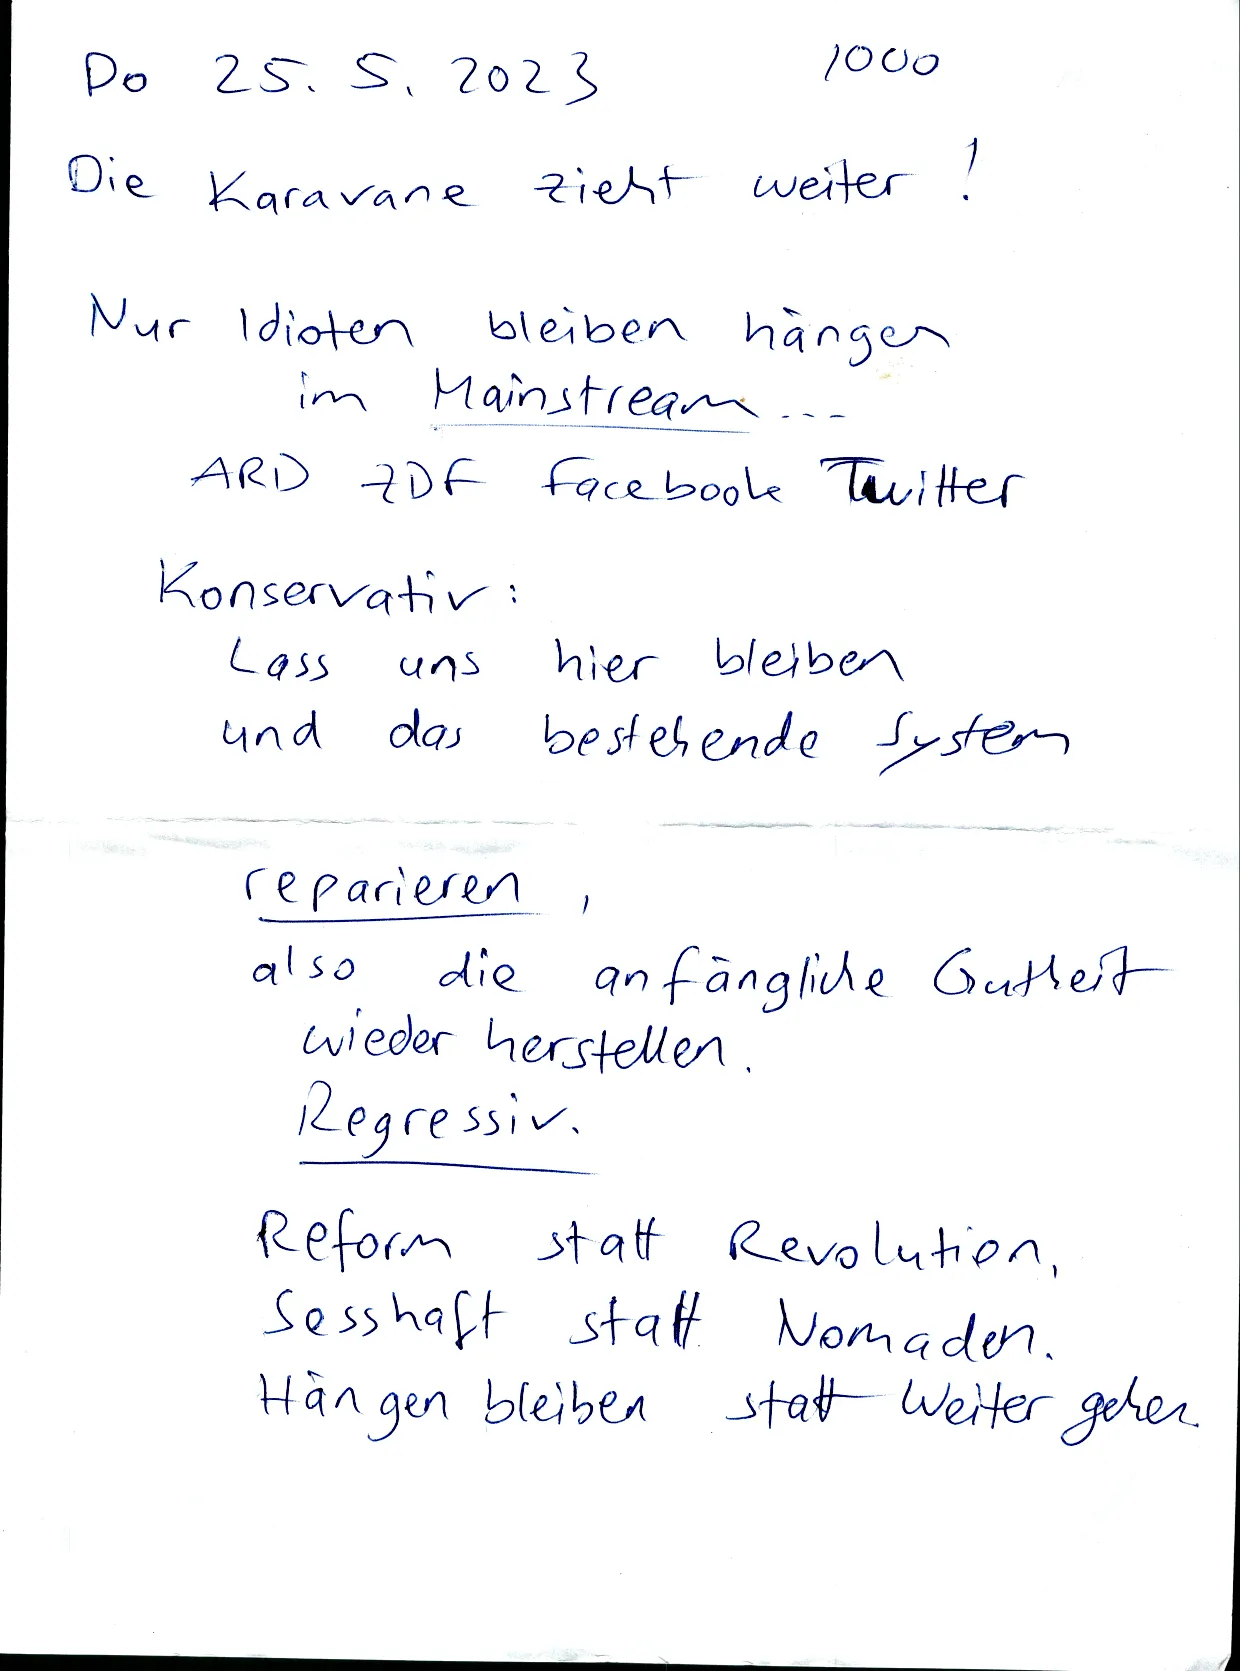 Do 25. 5. 2023 1000
Die Karavane zieht weiter!
Nur Idioten bleiben hängen
im Mainstream...
ARD ZDF Facebook Twitter
Konservativ:
Lass uns hier bleiben
und das bestehende System
reparieren,
also die anfängliche Gutheit
wieder herstellen.
Regressiv.
Reform statt Revolution,
Sesshaft statt Nomaden.
Hängen bleiben statt Weiter gehen